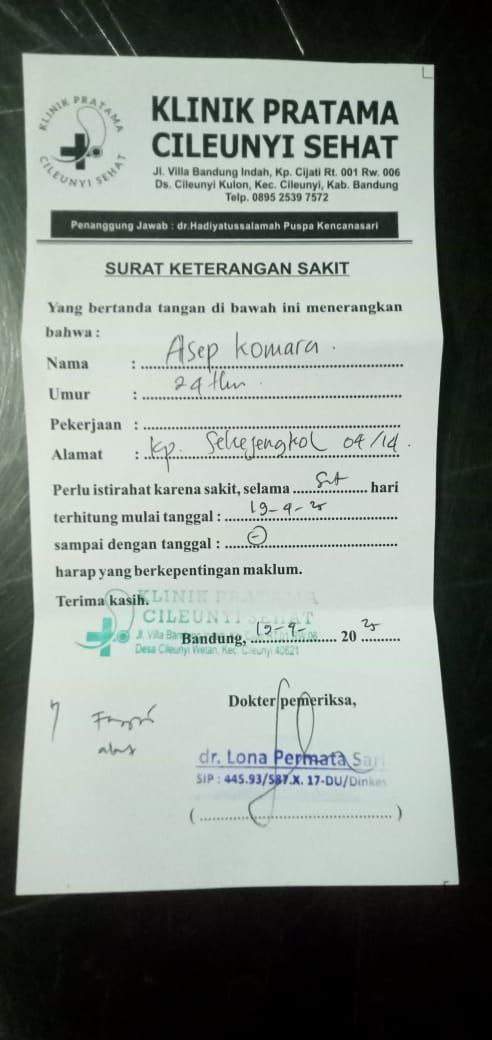 KLINIK PRATAMA
CILEUNYI SEHAT
KLINIK PRATAMA
CILEUNYI SEHAT
Jl. Villa Bandung Indah, Kp. Cijati Rt. 001 Rw. 006
Ds. Cileunyi Kulon, Kec. Cileunyi, Kab. Bandung
Telp. 0895 2539 7572
Penanggung Jawab : dr.Hadiyatussalamah Puspa Kencanasari
SURAT KETERANGAN SAKIT
Yang bertanda tangan di bawah ini menerangkan
bahwa :
Nama : Asep Komara
Umur : 24 thn
Pekerjaan :
Alamat : Kp. Sekejengkol 04/14
Perlu istirahat karena sakit, selama hari
terhitung mulai tanggal : 19-9-25
sampai dengan tanggal :
harap yang berkepentingan maklum.
Terima kasih.
KLINIK PRATAMA
CILEUNYI SEHAT
Jl. Villa
Desa Cileunyi Wetan, Kec. Cileunyi 40621
Bandung, 19-9- 20 25
Dokter pemeriksa,
dr. Lona Permata Sari
SIP : 445.93/587.X. 17-DU/Dinkes
(                    )